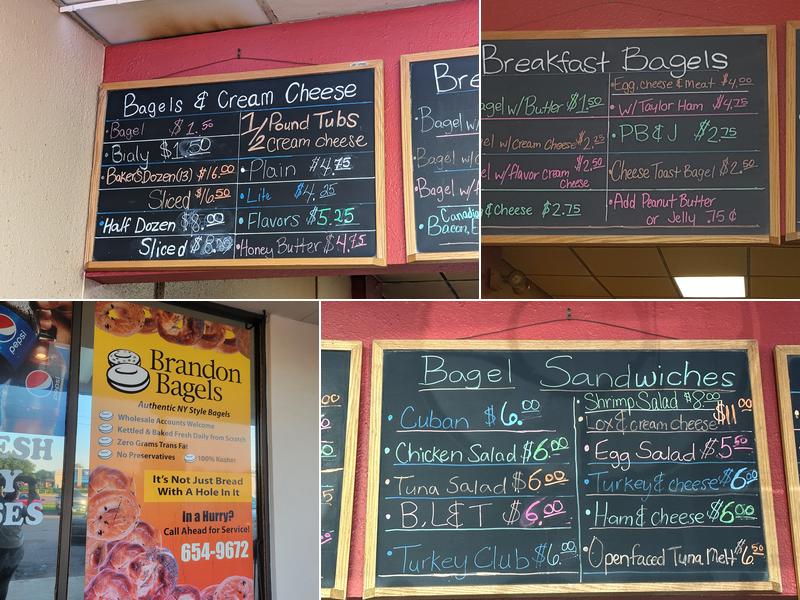 Bagels & Cream Cheese
• Bagel $1.50
• Bialy $1.50
• Baker's Dozen (13) $16.00
Sliced $16.50
Half Dozen $8.00
Sliced
1/2 Pound Tubs
cream cheese
• Plain $4.75
• Lite $4.25
• Flavors $5.25
• Honey Butter $4.75
Bre
• Bagel w/
• Bagel w/
• Bagel w/f
• Canadia
Bacon, E
Breakfast Bagels
agel w/Butter $1.50
el w/Cream Cheese $2.25
el w/flavor cream $2.50
cheese
& Cheese $2.75
• Egg, cheese & Meat $4.00
• w/ Taylor Ham $4.75
• PB & J $2.75
• Cheese Toast Bagel $2.50
• Add Peanut Butter
or Jelly .75¢
pepsi
ESH
Y
SES
Brandon
Bagels
Authentic NY Style Bagels
Wholesale Accounts Welcome
Kettled & Baked Fresh Daily from Scratch
Zero Grams Trans Fat
No Preservatives 100% Kosher
It's Not Just Bread
With A Hole In It
In a Hurry?
Call Ahead for Service!
654-9672
Bagel Sandwiches
• Cuban $6.00
• Chicken Salad $6.00
• Tuna Salad $6.00
• B.L.&T $6.00
• Turkey Club $6.00
• Shrimp Salad $8.00
• Lox & cream cheese $11.00
• Egg Salad $5.50
• Turkey & cheese $6.00
• Ham & cheese $6.00
• Openfaced Tuna Melt $6.50